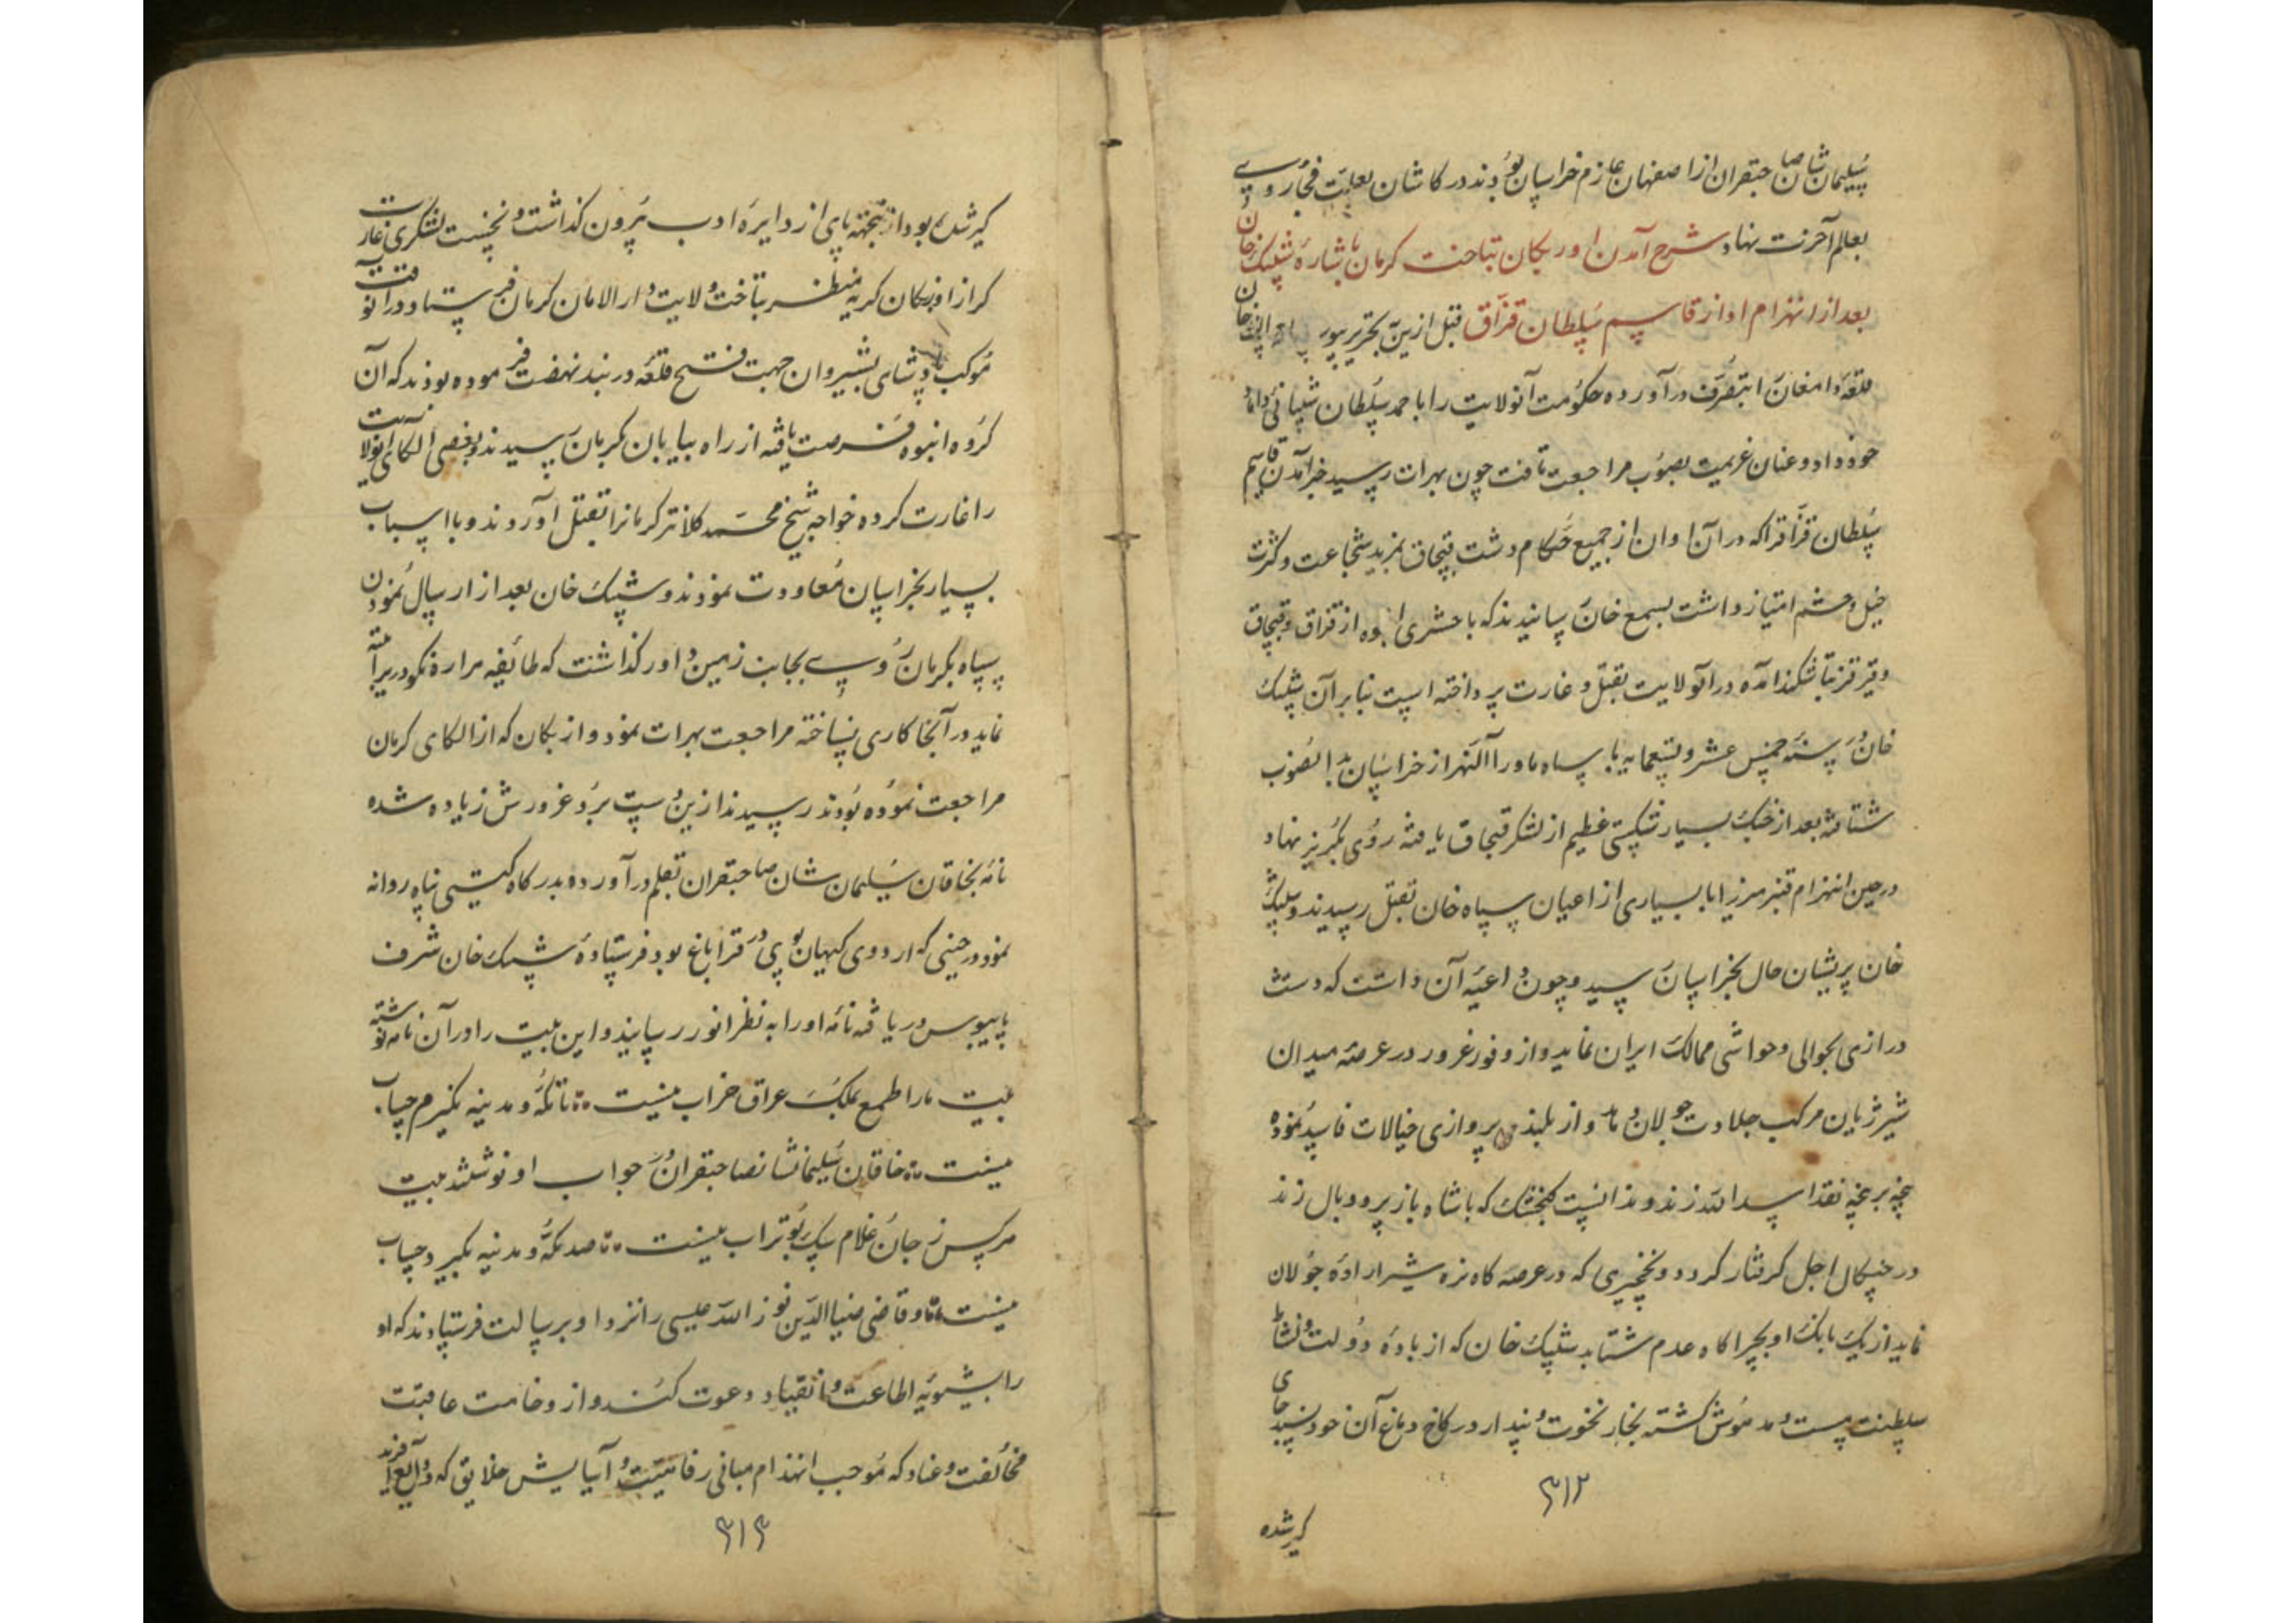 سلیمان شان صاحبقران از اصفهان عازم خراسان بودند در کاشان بعلت فجأ روی
بعالم آخرت نهاد شرح آمدن اوزبکان بتاخت کرمان باشارهٔ شیبک خان
بعد از انهزام او از قاسم سلطان قزاق قبل ازین تحریر خان
قلعهٔ دامغان را بتصرف در آورده حکومت آنولایت را باحمد سلطان شیبانی داماد
خود داد و عنان عزیمت بصوب مراجعت تافت چون بهرات رسید خبر آمدن قاسم
سلطان قزاق را که در آن اوان از جمیع حکام دشت قبچاق بمزید شجاعت و کثرت
خیل و حشم امتیاز داشت بسمع خان رسانیدند که با حشری انبوه از قزاق و قبچاق
و قیرقز بتاشکند آمده در آنولایت بقتل و غارت پرداخته است بنابر آن شیبک
خان در سنه خمس عشر و تسعمایه با سپاه ماوراء النهر از خراسان بدانصوب
شتافته بعد از جنک بسیار شکستی عظیم از لشکر قبچاق یافته روی بگریز نهاد
در حین انهزام قنبر میرزا با بسیاری از اعیان سپاه خان بقتل رسیدند و شیبک
خان پریشان حال بخراسان رسید و چون داعیه آن داشت که دست
درازی بحوالی و حواشی ممالک ایران نماید و از وفور غرور در عرصهٔ میدان
شیر ژیان مرکب جلادت جولان دهد و از بلند پروازی خیالات فاسد نموده
پنجه بر پنجهٔ نقد اسد الله زند و ندانست کنجشک که با شاه باز پر و بال زند
در چنکال اجل کرفتار کردد و نخچیری که در عرصه کاه نره شیر ارادهٔ جولان
نماید از یک بانک او بچراکاه عدم شتابد شیبک خان که از بادهٔ دولت و نشأ
سلطنت مست و مدهوش کشته بخار نخوت و پندار در کاخ دماغ آن خودپسند جای
۳۱۲
کیر شده
کیر شده بود از پخته پای از دایرهٔ ادب بیرون کذاشت و نخست لشکری غارت
کر از اوزبکان کریه منظر بتاخت ولایت دار الامان کرمان فرستاد و در آنوقت
موکب پادشاهی بشیروان جهت فتح قلعه دربند نهضت فرموده بودند که آن
کروه انبوه فرصت یافته از راه بیابان کرمان رسیدند و بعضی الکای آنولایت
را غارت کرده خواجه شیخ محمد کلانتر کرمانرا بقتل آوردند و با اسباب
بسیار بخراسان معاودت نمودند و شیبک خان بعد از ارسال نمودن
سپاه بکرمان روی بجانب زمین داور کذاشت که طائفهٔ هزاره نکودریرا
نماید در آنجا کاری نساخته مراجعت بهرات نمود و ازبکان که از الکای کرمان
مراجعت نموده بودند رسیدند ازین دست برد غرورش زیاده شده
نامه بخاقان سلیمان شان صاحبقران بقلم در آورده بدرکاه کیتی پناه روانه
نمود در حینی که اردوی کیهان پوی در قراباغ بود فرستادهٔ شیبک خان شرف
پایبوس دریافته نامه او را به نظر انور رسانید و این بیت را در آن نامه نوشته
بیت ما را طمع بملک عراق خراب نیست تا مکه و مدینه نکیرم حساب
نیست خاقان سلیمانشان صاحبقران در جواب او نوشتند بیت
هر کس ز جان غلام سک بوتراب نیست صد مکه و مدینه بکیرد حساب
نیست و قاضی ضیاالدین نور الله عیسی را نزد او برسالت فرستادند که او
را بشیوهٔ اطاعت و انقیاد دعوت کنند و از وخامت عاقبت
مخالفت و عناد که موجب انهدام مبانی رفاهیت و آسایش خلایق که ودایع آفریدکار
۳۱۳